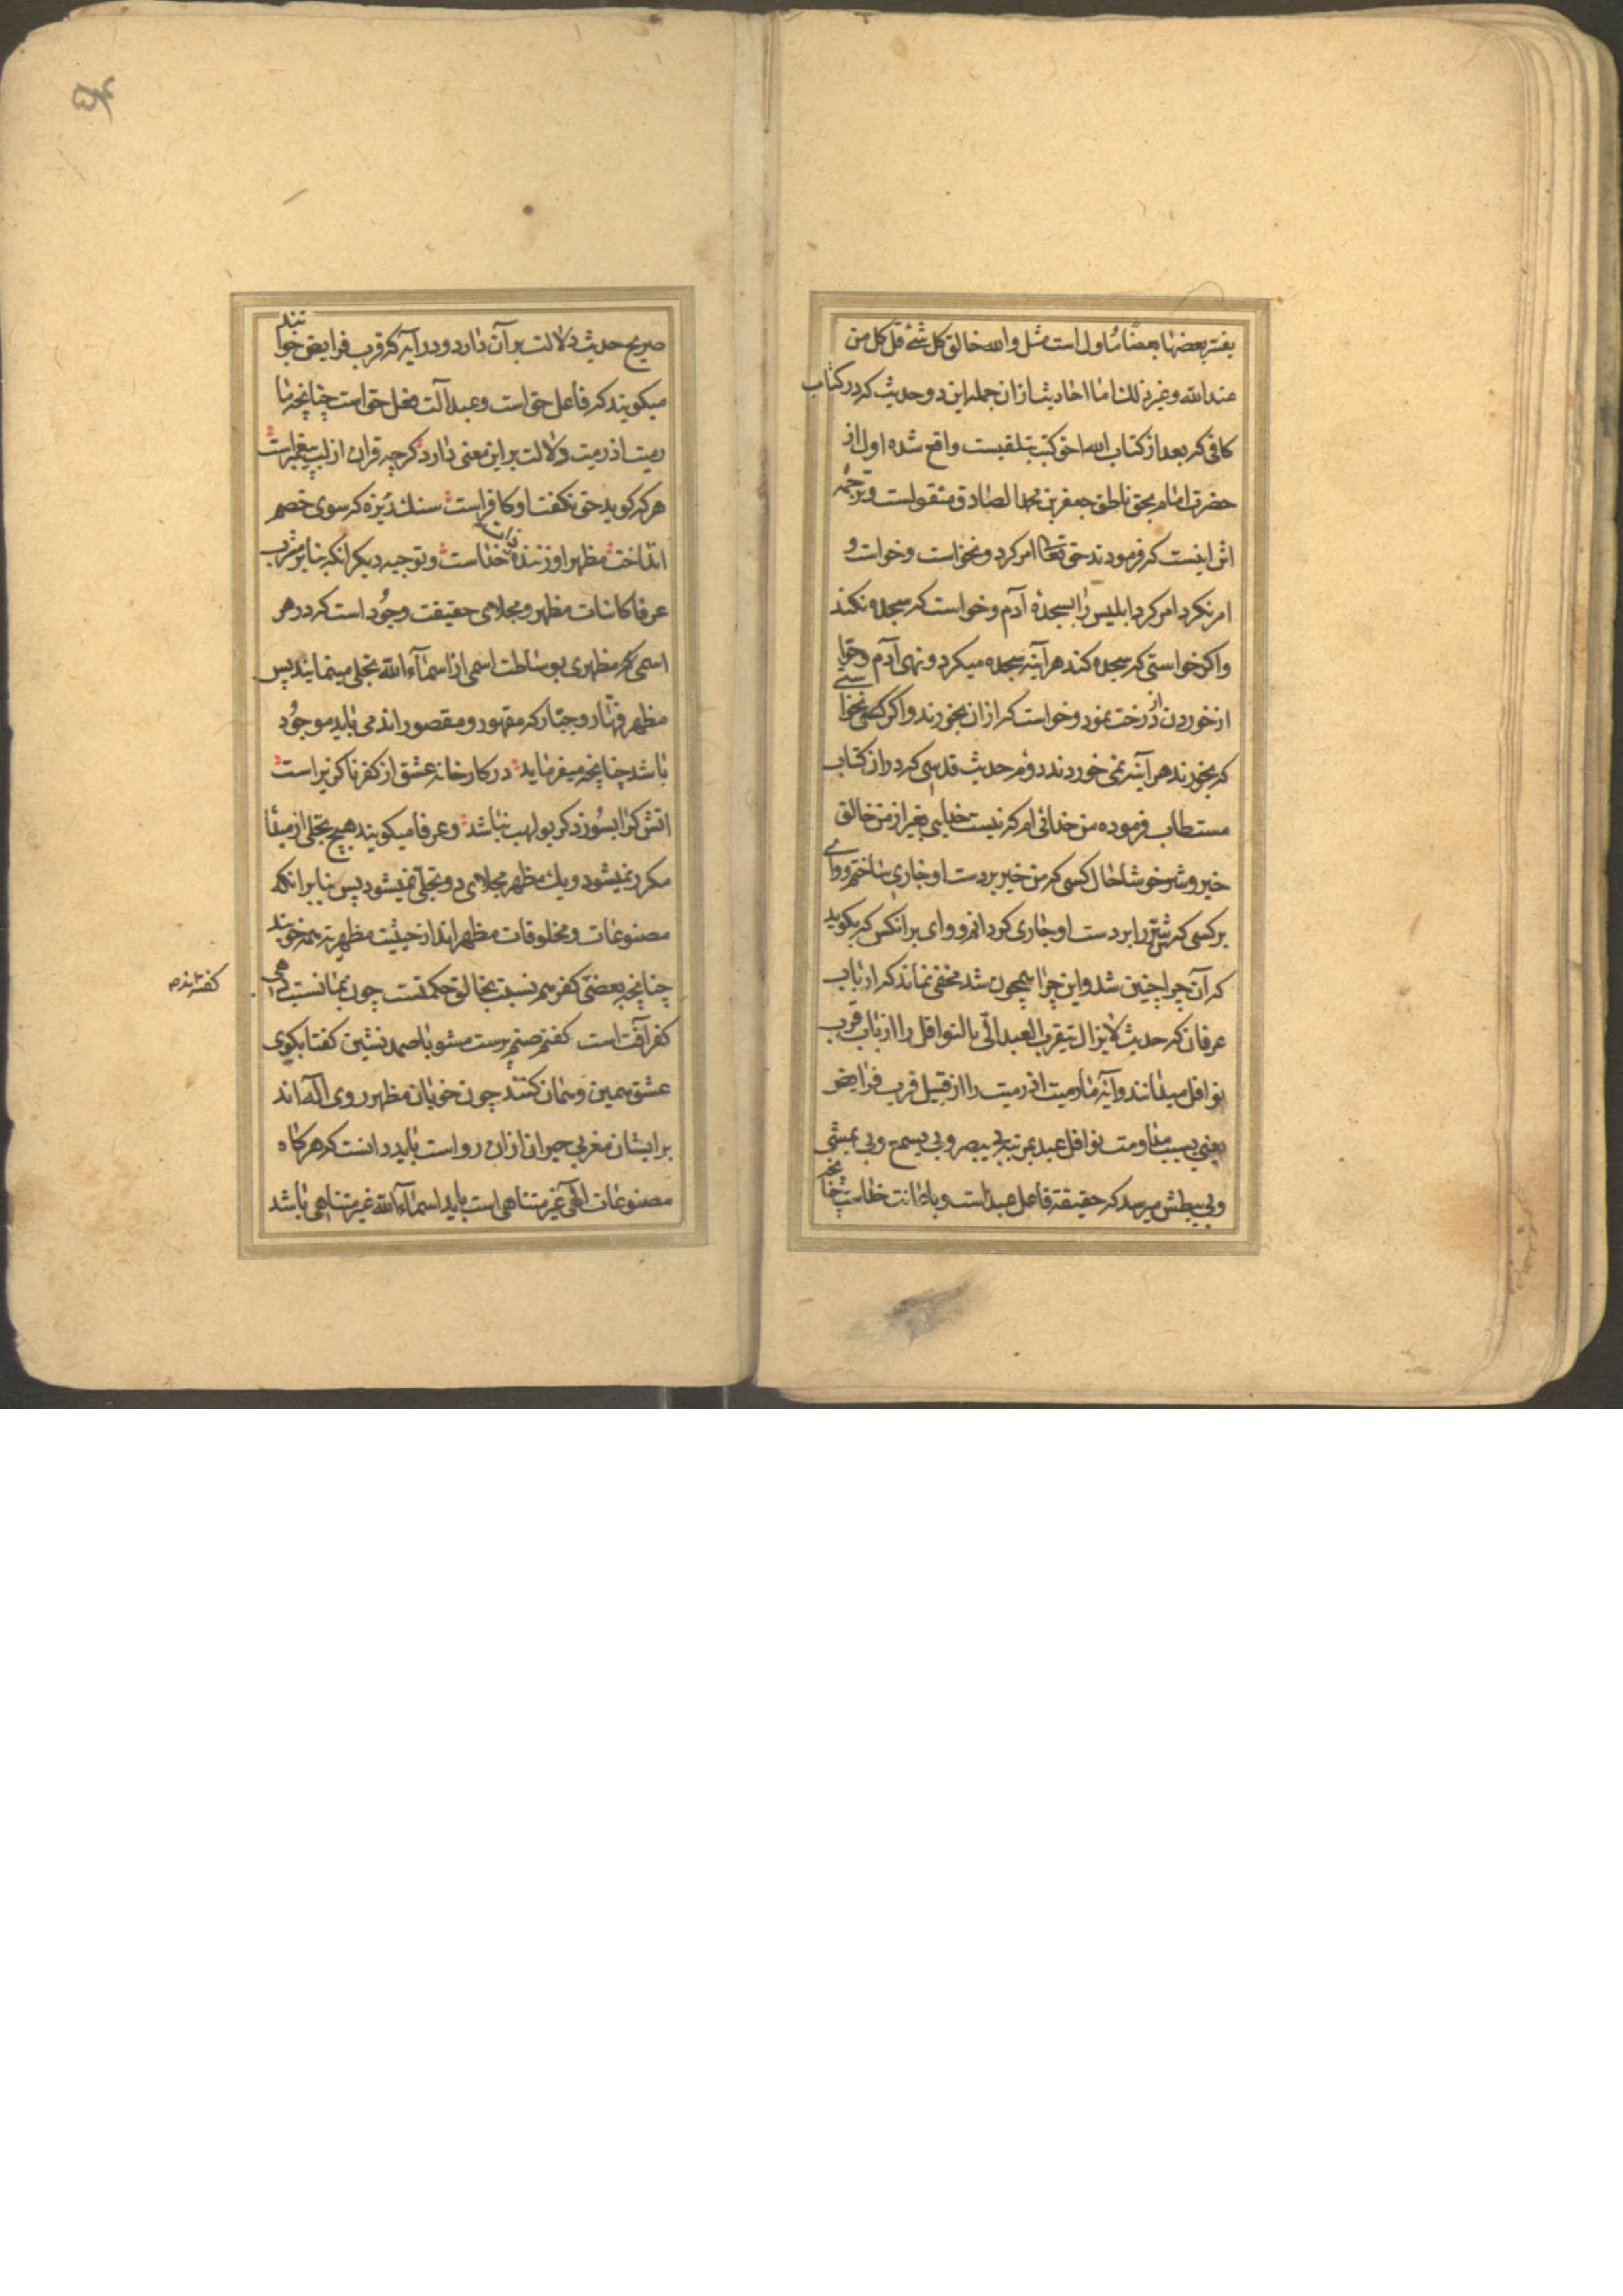 یفسر بعضها بعضا ماول است مثل والله خالق کل شئ قل کل من
عند الله وغیر ذلک اما احادیث از ان جمله این دو حدیث که در کتاب
کافی که بعد از کتاب الله احق کتب است واقع شده اول از
حضرت امام بحق ناطق جعفر بن محمد الصادق منقولست و ترجمه
اش اینست که فرمودند حق تعالی امر کرد و نخواست وخواست و
امر نکرد امر کرد ابلیس را بسجدهٔ آدم وخواست که سجده نکند
واکر خواستی که سجده کند هر آینه سجده میکرد و نهی آدم وحوا
از خوردن از درخت نمود وخواست که از ان بخورند واکر نخواستی
که بخورند هر آینه نمی خوردند دوم حدیث قدسی که در ان کتاب
مستطاب فرموده من خدائی ام که نیست خدایی بغیر از من خالق
خیر وشر خوشا حال کسی که من خیر بر دست او جاری ساختم ووای
بر کسی که شر را بر دست او جاری کردانم ووای بر انکس که بکوید
که آن چرا چنین شد واین چرا همچون شد مخفی نماند که ارباب
عرفان که حدیث لا یزال یتقرب العبد الّی بالنوافل را از باب قرب
نوافل میدانند وآیه ما رمیت اذ رمیت را از قبیل قرب فرایض
یعنی بسبب مداومت نوافل عبد بمرتبه بی یبصر وبی یسمع وبی یمشی
وبی یبطش میرسد که حقیقة فاعل عبد است وباطانت خداست چنانچه
صریح حدیث دلالت بر آن دارد ودر آیه که قرب فرایض خوانند
میکویند که فاعل حق است وعبد آلت فعل حق است چنانچه ما
رمیت اذ رمیت دلالت بر این معنی دارد کرچه قران از لب پیغمبر است
هر که کوید حق نکفت او کافر است سنک ریزه که سوی خصم
انداخت مظهر او زنندهٔ ان خداست وتوجیه دیکر انکه بنابر مشرب
عرفا کائنات مظهر ومجلای حقیقت وجود است که در هر
اسمی که مظهری بوساطت اسمی از اسماء الله تجلی مینمایند پس
مظهر قهار وجبار که مقهور ومقصور اند می باید موجود
باشد چنانچه میفرماید در کارخانه عشق از کفر ناکزیر است
اتش کرا بسوزد کر بولهب نباشد وعرفا میکویند هیچ تجلی از مبدأ
مکرر نمیشود ویک مظهر مجلای دو تجلی نمیشود پس بنابر انکه
مصنوعات ومخلوقات مظهر اند از حیثیت مظهریة همه خوبند
چنانچه بعضی کفر هم نسبت بخالق حکمتست چون بما نسبت دهی
کفر آفت است کفتم صنم پرست مشو با صمد نشین کفتا بکوی
عشق همین وهمان کنند چون خوبان مظهر روی اله اند
برایشان مغربی حیران از ان رو است باید دانست که هر کاه
مصنوعات الهی غیر متناهی است باید اسماء الله غیر متناهی باشد
کفته اند م